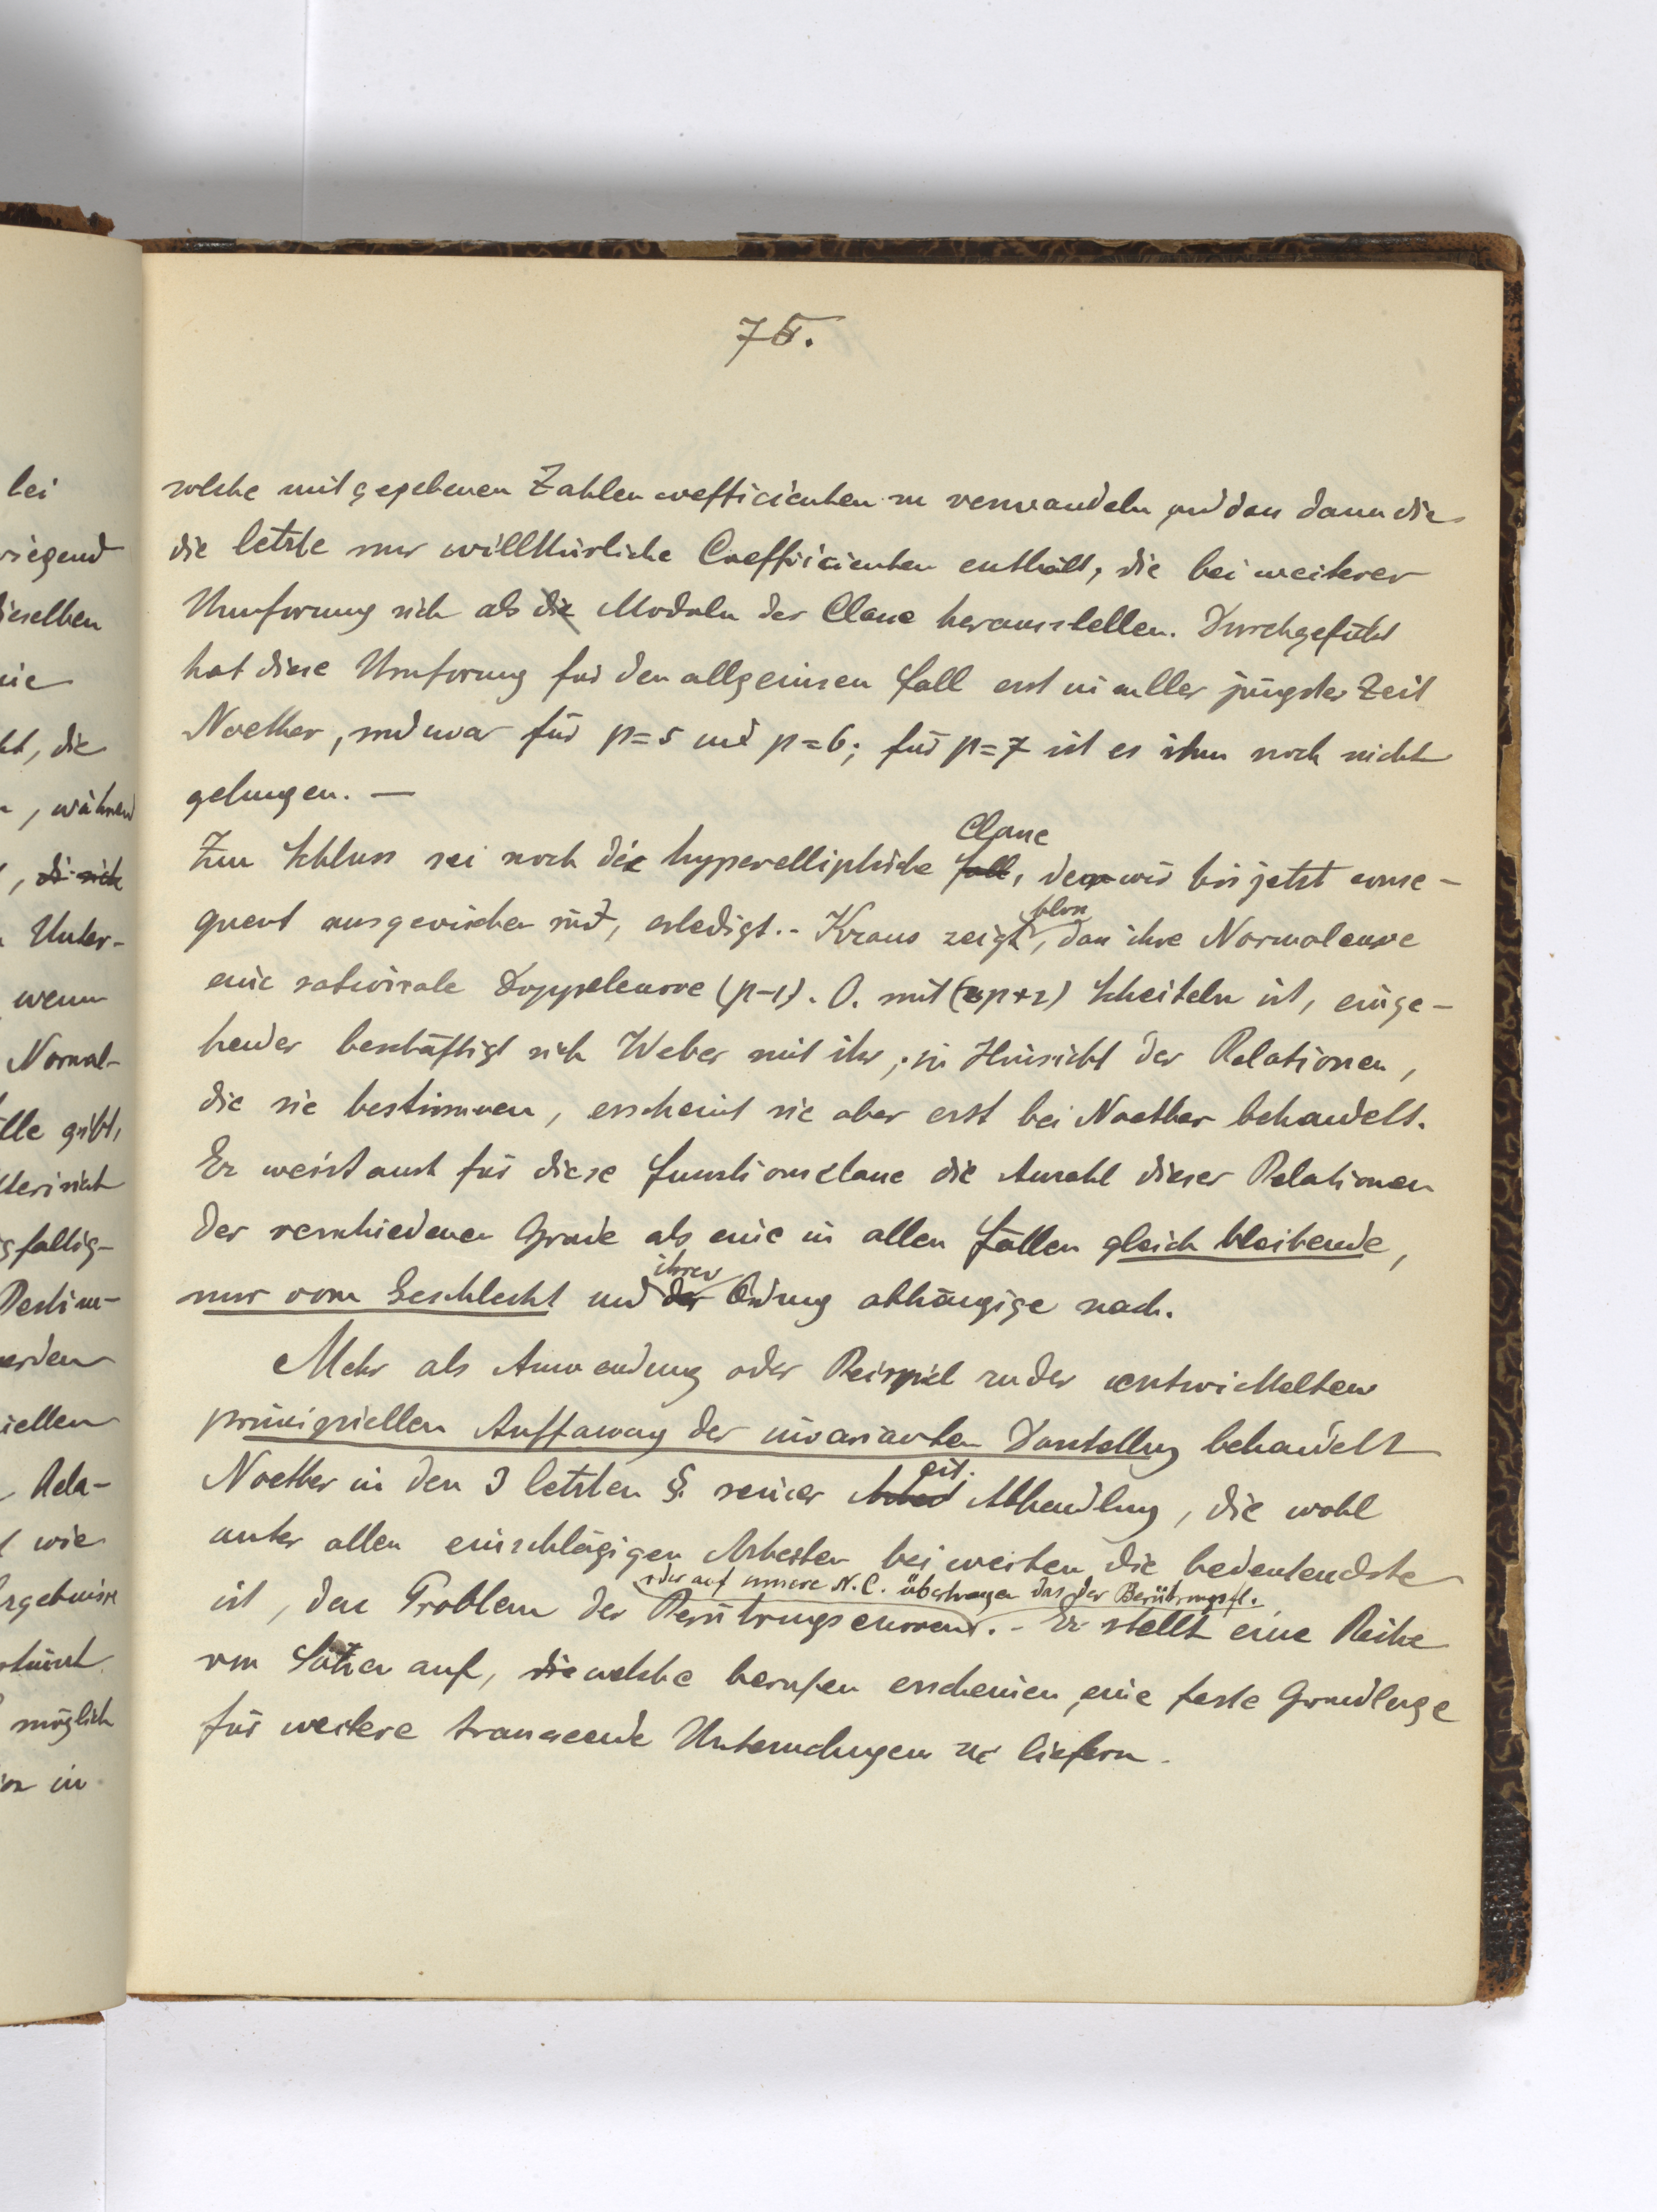 75.
solche mit gegebenen Zahlencoefficienten zu verwandeln, und dass dann die
die letzte nur willkürliche Coefficienten enthält, die bei weiterer
Umformung sich als die Moduln der Classe herausstellen. Durchgeführt
hat diese Umformung für den allgemeinen Fall erst in aller jüngster Zeit
Noether, und zwar für p=5 und p=6; für p=7 ist es ihm noch nicht
gelungen. —
Classe
Zum Schluss sei noch die hyperelliptische Fall, der wir bis jetzt conse-
quent ausgewichen sind, erledigt. - Kraus zeigt, bloss dass ihre Normalcurve
eine rationale Doppelcurve (p-1). O. mit (2p+2) Scheiteln ist, einge-
hender beschäftigt sich Weber mit ihr; in Hinsicht der Relationen,
die sie bestimmen, erscheint sie aber erst bei Noether behandelt.
Er weist auch für diese Functionsclasse die Anzahl dieser Relationen
der verschiedenen Grade als eine in allen Fällen gleich bleibende,
nur vom Geschlecht und der ihrer Ordnung abhängige nach.
Mehr als Anwendung oder Beispiel zu der entwickelten
principiellen Auffassung der invarianten Darstellung behandelt
Noether in den 3 letzten §. seiner Arbeit cit. Abhandlung, die wohl
unter allen einschlägigen Arbeiten bei weitem die bedeutendste
oder auf unsere N.C. übertragen das der Berührungspt.
ist, das Problem der Berührungscurven. - Er stellt eine Reihe
von Sätzen auf, die welche berufen erscheinen, eine feste Grundlage
für weitere Untersuchungen zu liefern.
lei
wiegend
dieselben
, die
, während
, die sich
Unter-
wenn
Normal-
gibt,
Bestim-
werden
Rela-
wie
möglich
in